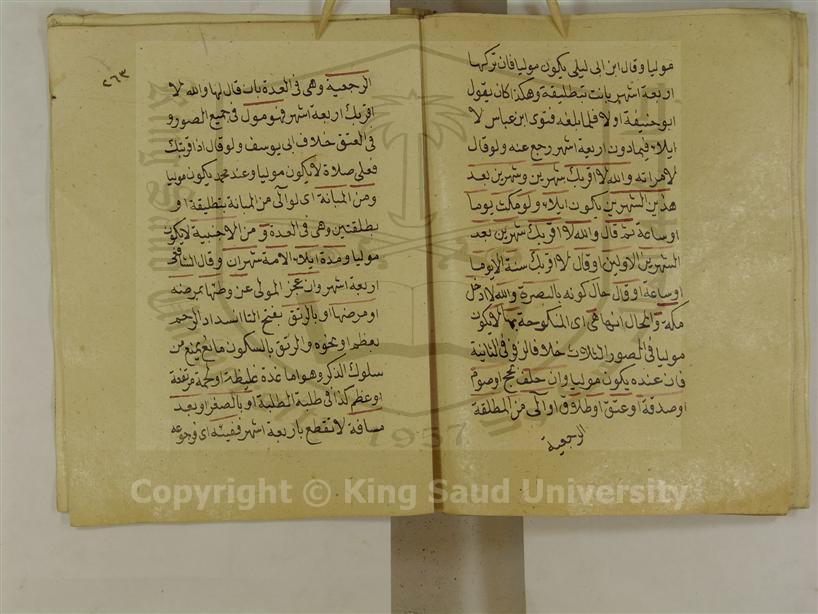 موليا وقال ابن ابى ليلى يكون موليا فان تركها
اربعة اشهر بانت بتطليقة وهكذا كان يقول
ابو حنيفة اولا فلما بلغه فتوى ابن عباس لا
ايلاء فيما دون اربعة اشهر رجع عنه ولو قال
لامراته والله لا اقربك شهرين وشهرين بعد
هذين الشهرين يكون ايلاء ولو مكث يوما
او ساعة ثم قال والله لا اقربك شهرين بعد
الشهرين الاولين او قال لا اقربك سنة الا يوما
او ساعة او قال حال كونه بالبصرة والله لا ادخل
مكة والحال انها هى اى المنكوحة بها لا يكون
موليا فى الصور الثلاث خلافا لزفر فى الثانية
فان عنده يكون موليا وان حلف بحج او صوم
او صدقة او عتق او طلاق او آلى من المطلقة
الرجعية
٢٦٣
الرجعية وهى فى العدة بان قال لها والله لا
اقربك اربعة اشهر فهو مول فى جميع الصور و
فى العتق خلاف ابى يوسف ولو قال اذا قربتك
فعلى صلاة لا يكون موليا وعند محمد يكون موليا
ومن المبانة اى لو آلى من المبانة بتطليقة او
بطلقتين وهى فى العدة و من الاجنبية لا يكون
موليا ومدة ايلاء الامة شهران وقال الشافعى
اربعة اشهر وان عجز المولى عن وطئها بمرضه
او مرضها او بالرتق بفتح التا انسداد الرحم
بعظم او نحوه والرتق بالسكون مانع يمنع من
سلوك الذكر وهو اما غدة غليظة او لحمة مرتفعة
او عظم كذا فى طلبة الطلبة او بالصغر او بعد
مسافة لا تقطع باربعة اشهر ففيئه اى رجوعه
1957
Copyright © King Saud University